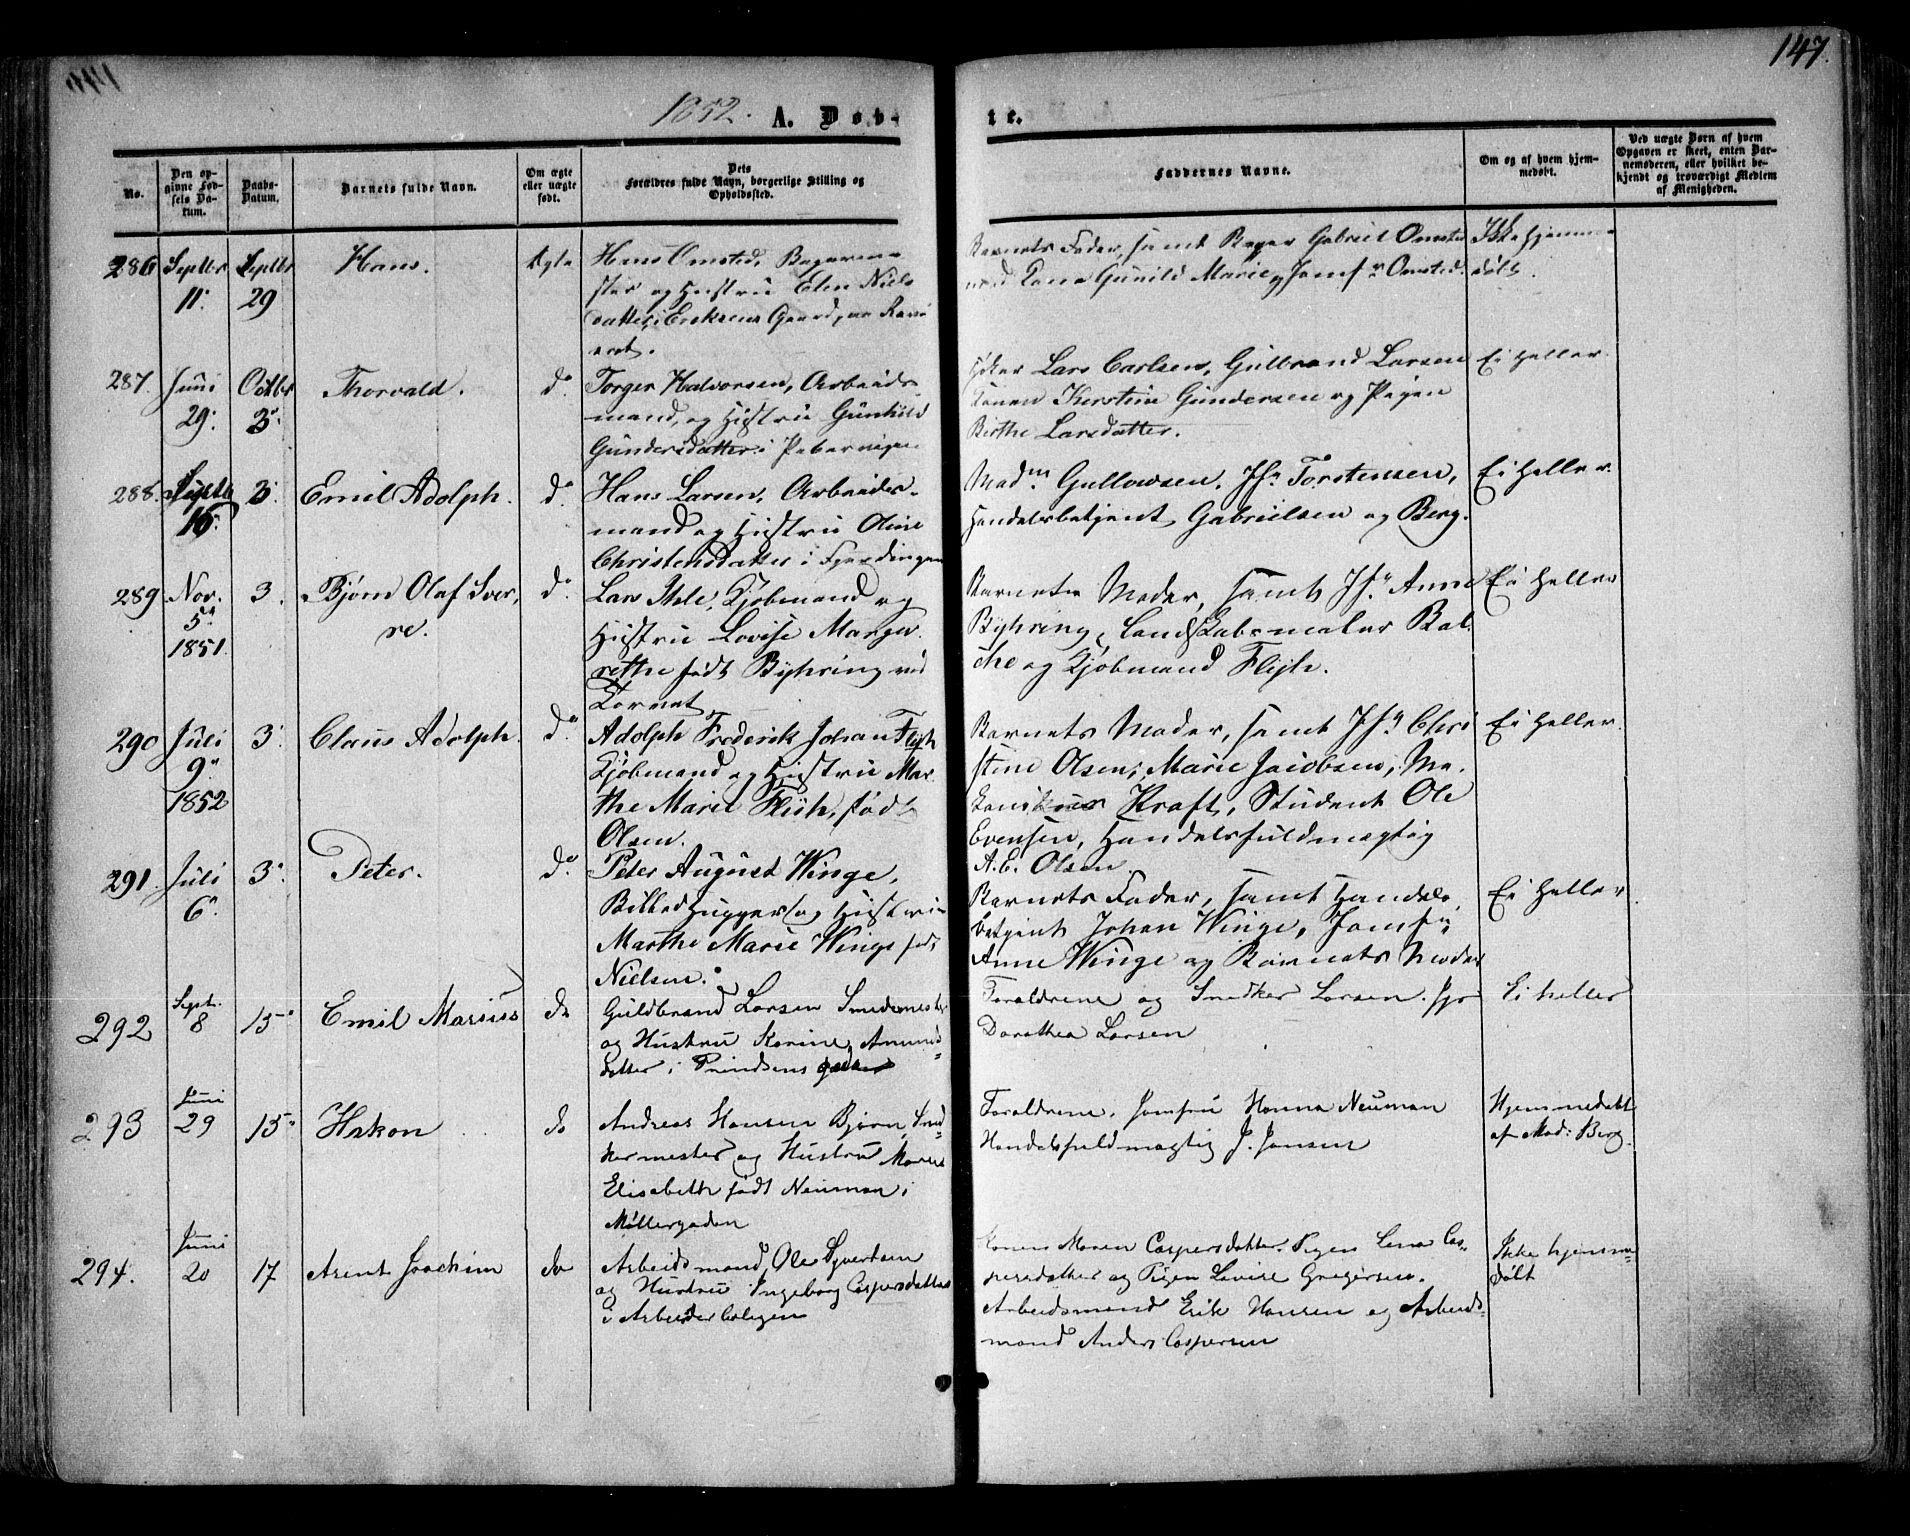 147.
1852. A. Døb-
te.
No.
Den opgivne Fødsels Datum.
Daabs-Datum.
Barnets fulde Navn.
Om ægte eller uægte født.
Dets Forældres fulde Navn, borgerlige Stilling og Opholdssted.
Faddernes Navne.
Om og af hvem hjemmedøbt.
Ved uægte Børn af hvem Opgaven er skeet, enten Barnemoderen, eller hvilket bekjendt og troværdigt Medlem af Menigheden.
286 Septbr 11. Septbr 29 Hans. Ægte
Hans Omsted, Bagerme-
ster og Hustru Elen Niels
datter i Eriksens Gaard,
Barnets Fader, samt Bager Gabriel Omsted
Kone Gunild Marie Jomfr Omsted.
Ikke hjemme
døbt.
287. Juni 29. Octbr 3. Thorvald. do
Torger Halvorsen, Arbeids-
mand, og Hustru Gunhild
Gundersdatter i Pebervigen
Lars Carlsen, Gulbrand Larsen
Konen Kerstine Gundersen og Pigen
Birthe Larsdatter.
Ei heller.
288. Septb 16. 3. Emil Adolph. do
Hans Larsen, Arbeids-
mand og Hustru Oline
Christensdatter i Fjerdingen
Madm Gullowsen, Jfr Torstensen,
Handelsbetjent Gabrielsen og Berg.
Ei heller.
289 Nov. 5. 1851. 3. Bjørn Olaf Sver,
re. do
Lars Ihle, Kjøbmand og
Hustru Lovise Marga-
rethe født Byhring ved
Torvet
Barnets Moder, samt Jfr Anne
Byhring, Landskabsmaler Bal-
che og Kjøbmand Flijh.
Ei heller
290 Juli 9. 1852 3. Claus Adolph. do
Adolph Frederik Johan Flijh
Kjøbmand og Hustru Mar-
the Marie Flijh, født
Olsen.
Barnets Moder, samt Jfr Chri
stine Olsen, Marie Jacobsen, Me-
kanikus Kraft, Student Ole
Evensen, Handelsfuldmægtig
A. E. Olsen.
Ei heller.
291. Juli 6. 3. Peter. do
Peter August Winge,
Billedhugger og Hustru
Marthe Marie Winge født
Nielsen.
Barnets Fader, samt Handels-
betjent Johan Winge, Jomfr
Anne Winge og Barnets Moder
Ei heller
292 Sept. 8 15. Emil Marius do
Guldbrand Larsen Smedemester
og Hustru Karine Amund-
datter i Prindsens gaden
Forældrene og Snedker Larsen. Jfr
Dorothea Larsen
Ei heller
293 Juni 29 15. Hakon do
Andreas Hansen Bjørn Sned-
kermester og Hustru Maren
Elisabeth født Neuman i
Møllergaden
Forældrene. Jomfru Hanna Neuman
Handelsfuldmægtig J. Jansen
Hjemmedøbt
af Mad: Berg.
294. Juni 20 17 Arent Joachim do
Arbeidsmand Ole Syvertsen
og Hustru Ingeborg Caspersdatter
i Arbeiderboligen
Konen Maren Caspersdatter. Pigen Lena Cas-
persdatter og Pigen Lovise Gregersen.
Arbeidsmand Erik Hansen og Arbeids-
mand Anders Caspersen
Ikke hjemme-
døbt